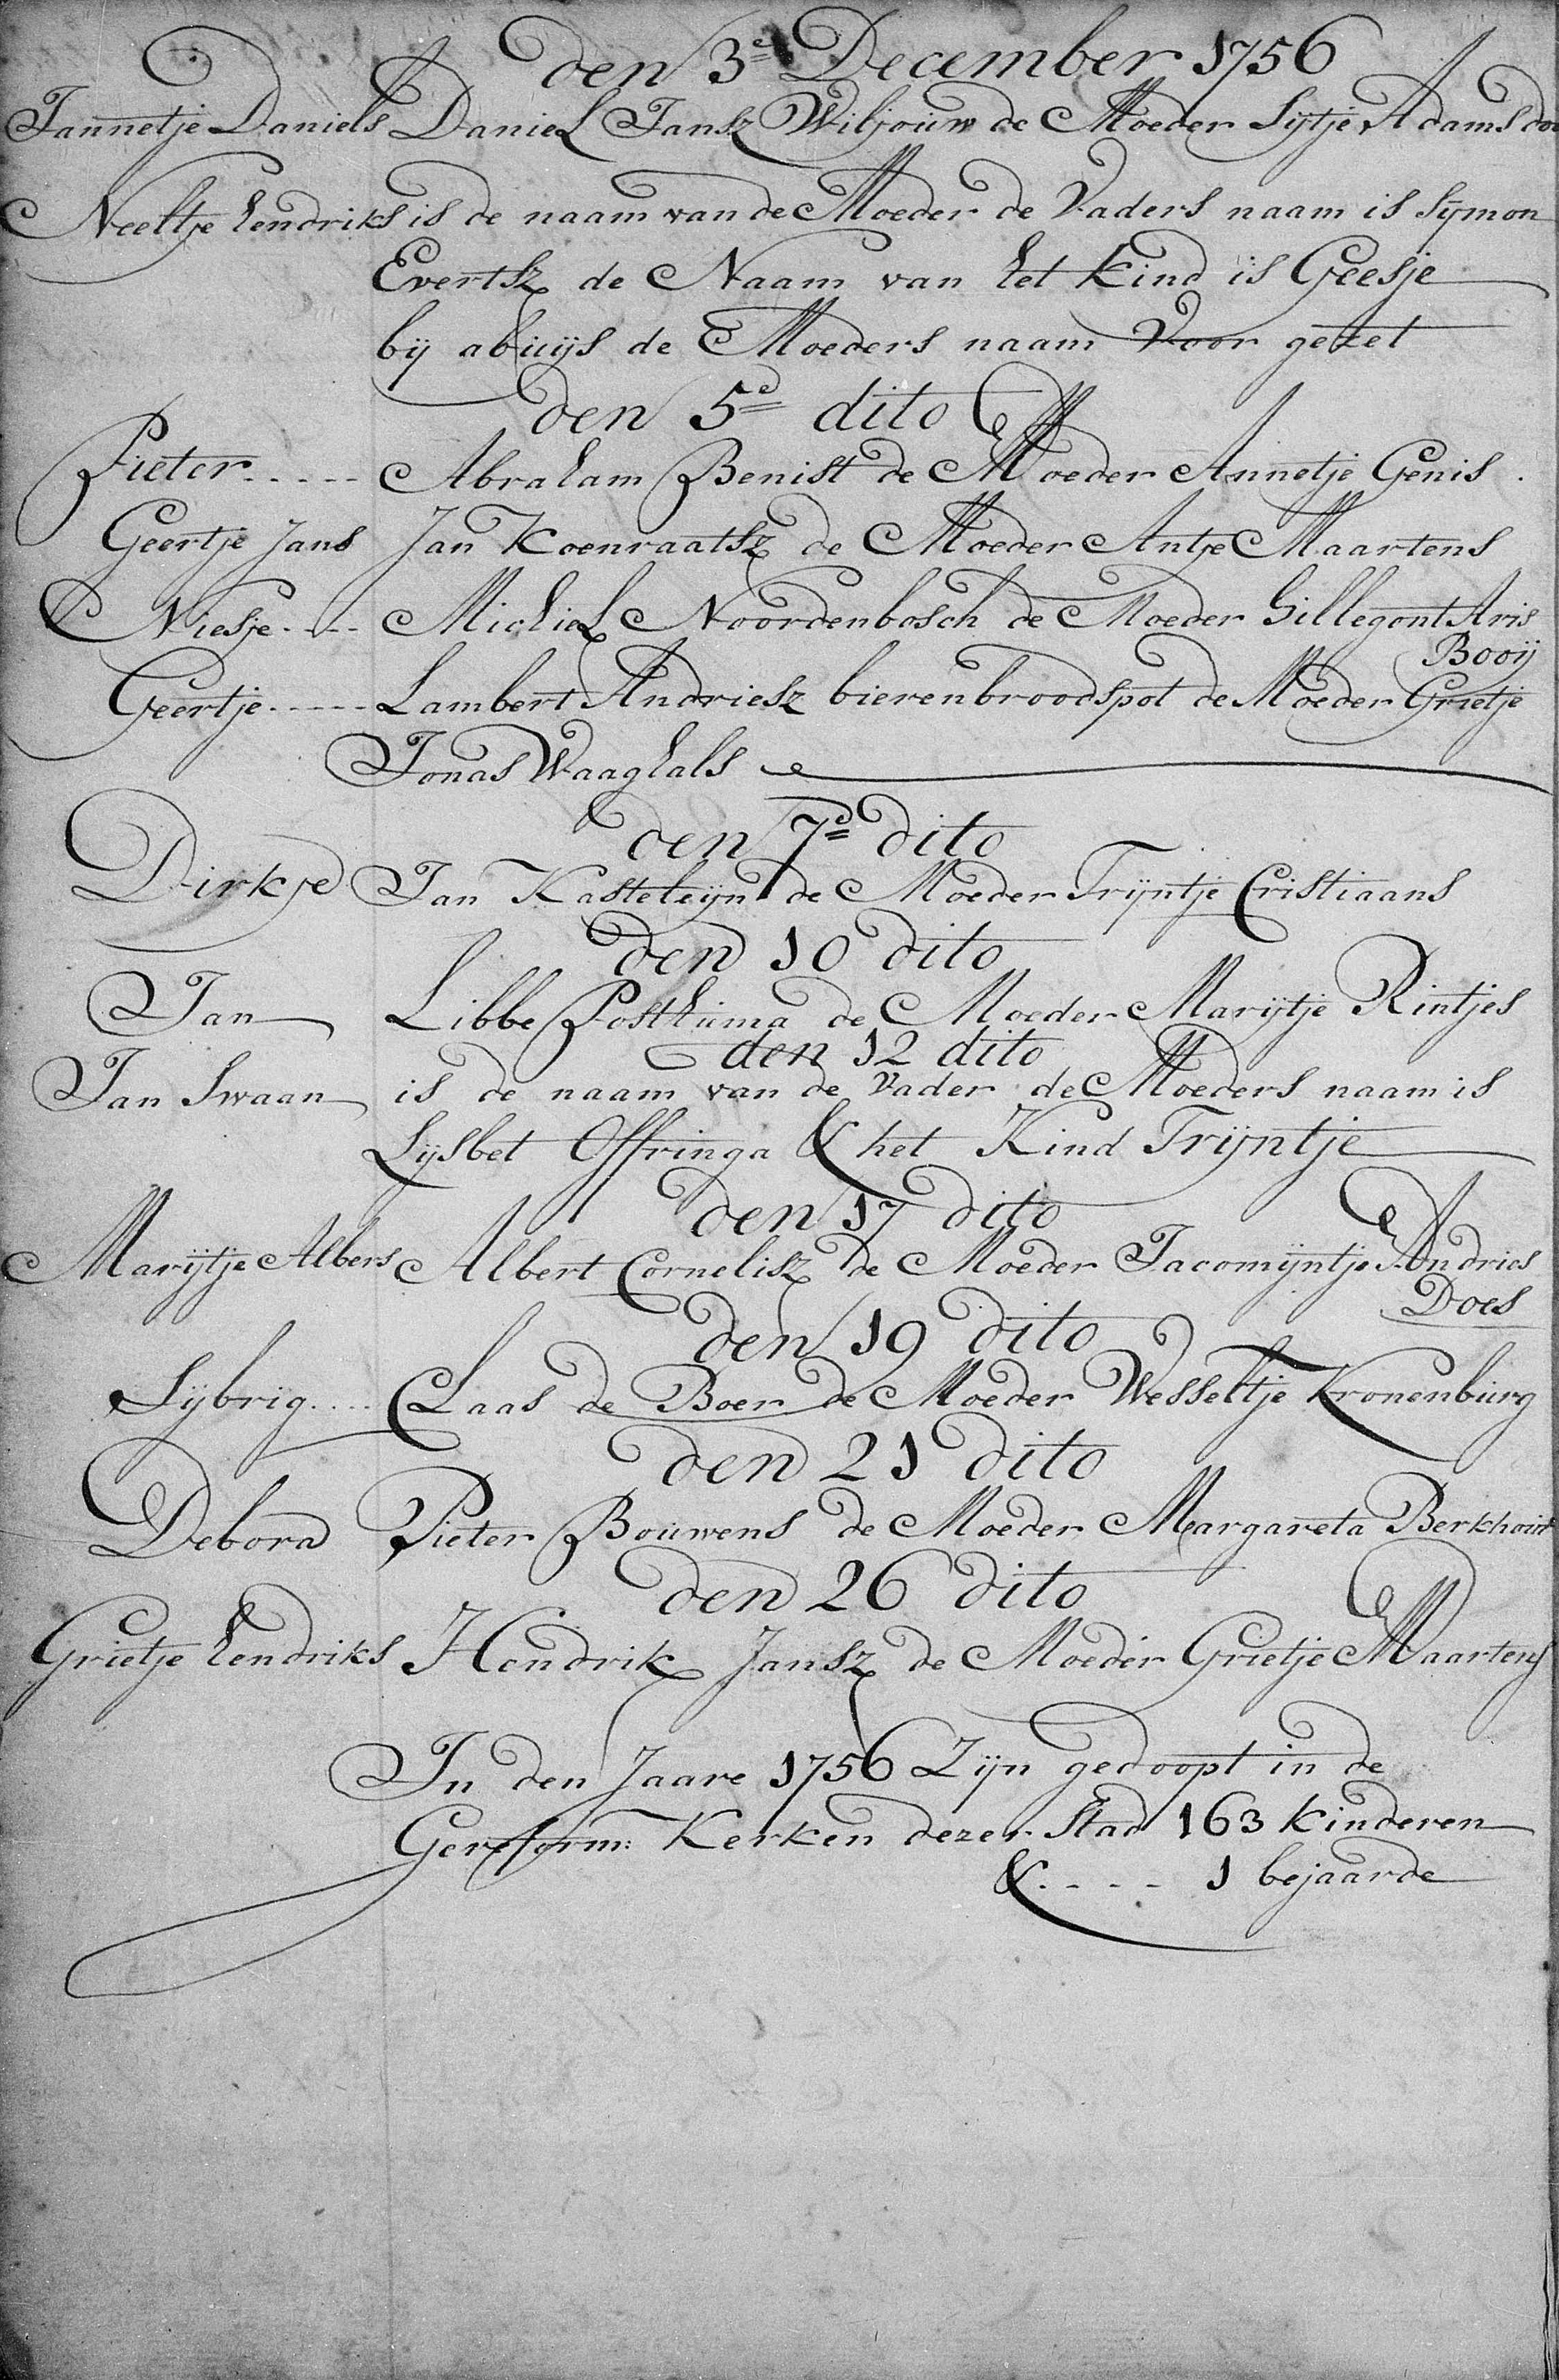 den 3e December 1756
Jannetje Daniels Daniel Jansz Wiljouw de Moeder Sijtje Adams
Neeltje hendriks is de naam van de Moeder de Vaders naam is Sijmon
Evertsz de Naam van het Kind is Geesje
bij abuijs de Moeders naam Voor gezet
den 5e dito
Pieter..... Abraham Benist de Moeder Annetje Genis.
Geertje Jans Jan Koenraatsz de Moeder Antje Maartens
Niesje.... Michiel Noordenbosch de Moeder hillegont Aris
Booij
Geertje..... Lambert Andriesz bierenbroodspot de Moeder Grietje
Jonas Waaghals
den 7e dito
Dirkje Jan Kasteleijn de Moeder Trijntje Cristiaans
den 10 dito
Jan Libbe Posthuma de Moeder Marijtje Rintjes
den 12 dito
Jan Swaan is de naam van de Vader de Moeders naam is
Lijsbet Offringa & het Kind Trijntje
den 17 dito
Marijtje Albers Albert Cornelisz de Moeder Jacomijntje Andries
Does
den 19 dito
Sijbrig.... Claas de Boer de Moeder Wesseltje Kronenburg
den 21 dito
Debora Pieter Bouwens de Moeder Margareta Berkhout
den 26 dito
Grietje hendriks Hendrik Jansz de Moeder Grietje Maartens
In den Jaare 1756 Zijn gedoopt in de
Gereform: Kerken dezer Stad 163 kinderen
&.... 1 bejaarde